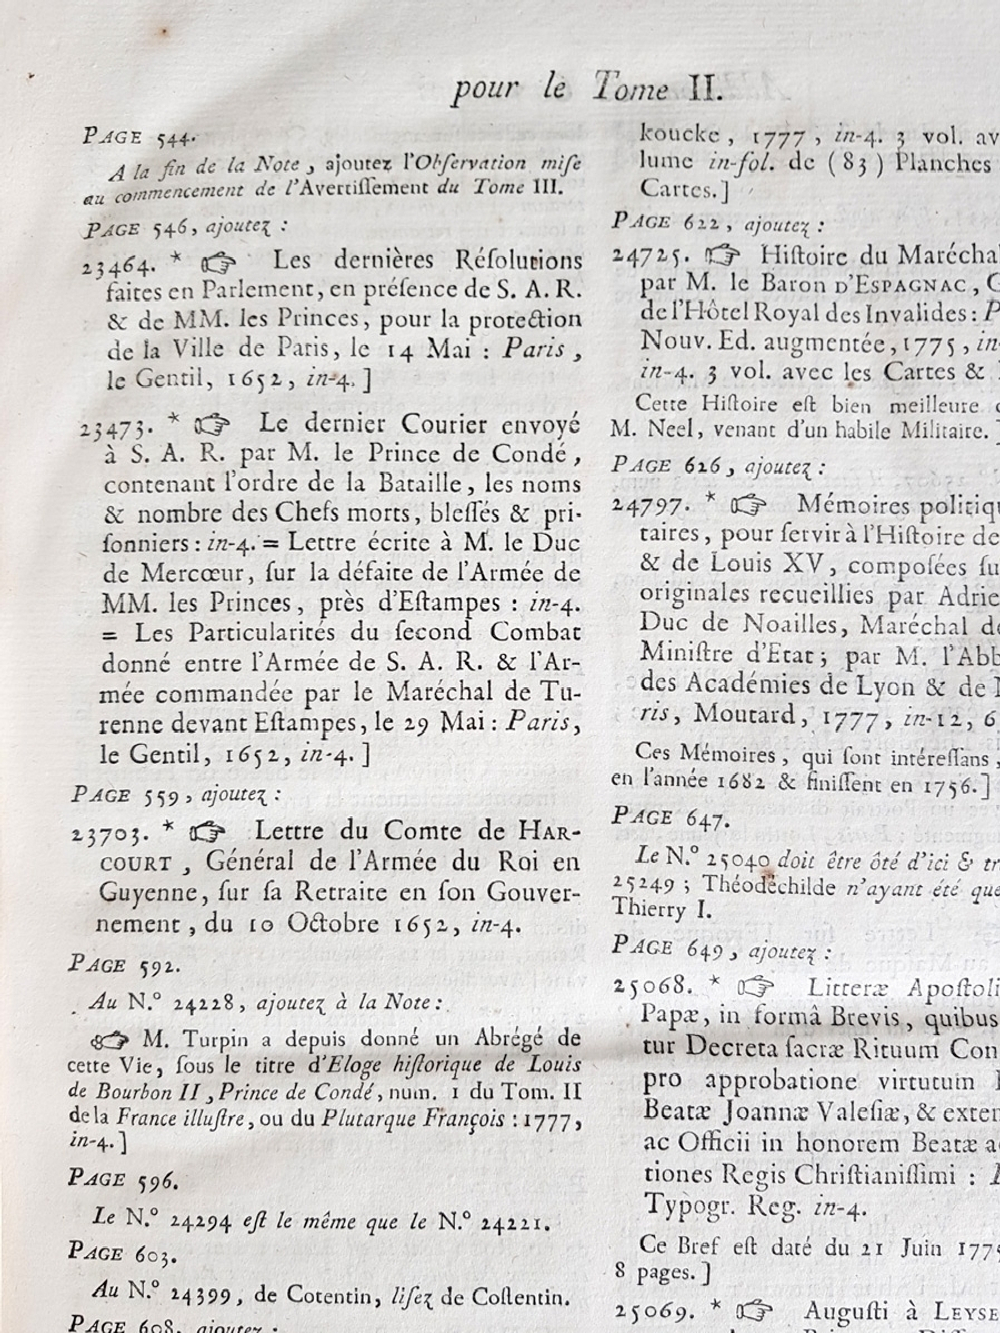 pour le Tome II.
PAGE 544.
A la fin de la Note, ajoutez l'Obſervation miſe
au commencement de l'Avertiſſement du Tome III.
PAGE 546, ajoutez :
23464. * ☞ Les dernières Réſolutions
faites en Parlement, en préſence de S. A. R.
& de MM. les Princes, pour la protection
de la Ville de Paris, le 14 Mai : Paris,
le Gentil, 1652, in-4. ]
23473. * ☞ Le dernier Courier envoyé
à S. A. R. par M. le Prince de Condé,
contenant l'ordre de la Bataille, les noms
& nombre des Chefs morts, bleſſés & pri-
ſonniers : in-4. = Lettre écrite à M. le Duc
de Mercœur, ſur la défaite de l'Armée de
MM. les Princes, près d'Eſtampes : in-4.
= Les Particularités du ſecond Combat
donné entre l'Armée de S. A. R. & l'Ar-
mée commandée par le Maréchal de Tu-
renne devant Eſtampes, le 29 Mai : Paris,
le Gentil, 1652, in-4. ]
PAGE 559, ajoutez :
23703. * ☞ Lettre du Comte de HAR-
COURT, Général de l'Armée du Roi en
Guyenne, ſur ſa Retraite en ſon Gouver-
nement, du 10 Octobre 1652, in-4.
PAGE 592.
Au N.º 24228, ajoutez à la Note :
☞ M. Turpin a depuis donné un Abrégé de
cette Vie, ſous le titre d'Eloge hiſtorique de Louis
de Bourbon II, Prince de Condé, num. 1 du Tom. II
de la France illuſtre, ou du Plutarque François : 1777,
in-4. ]
PAGE 596.
Le N.º 24294 eſt le même que le N.º 24221.
PAGE 603.
Au N.º 24399, de Cotentin, liſez de Coſtentin.
PAGE 608, ajoutez :
koucke, 1777, in-4. 3 vol. av
lume in-fol. de (83) Planches
Cartes. ]
PAGE 622, ajoutez :
24725. ☞ Hiſtoire du Marécha
par M. le Baron D'ESPAGNAC, G
de l'Hôtel Royal des Invalides : P
Nouv. Ed. augmentée, 1775, in-
in-4. 3 vol. avec les Cartes &
Cette Hiſtoire eſt bien meilleure
M. Neel, venant d'un habile Militaire.
PAGE 626, ajoutez :
24797. * ☞ Mémoires politiqu
taires, pour ſervir à l'Hiſtoire de
& de Louis XV, compoſées ſu
originales recueillies par Adrie
Duc de Noailles, Maréchal de
Miniſtre d'Etat; par M. l'Abb
des Académies de Lyon & de
ris, Moutard, 1777, in-12, 6
Ces Mémoires, qui ſont intéreſſans,
en l'année 1682 & finiſſent en 1756. ]
PAGE 647.
Le N.º 25040 doit être ôté d'ici & tr
25249 ; Théodéchilde n'ayant été que
Thierry I.
PAGE 649, ajoutez :
25068. * ☞ Litteræ Apoſtoli
Papæ, in formâ Brevis, quibus
tur Decreta ſacræ Rituum Con
pro approbatione virtutum
Beatæ Joannæ Valeſiæ, & exten
ac Officii in honorem Beatæ a
tiones Regis Chriſtianiſſimi :
Typogr. Reg. in-4.
Ce Bref eſt daté du 21 Juin 177
8 pages. ]
25069. * ☞ Auguſti à LEYSE